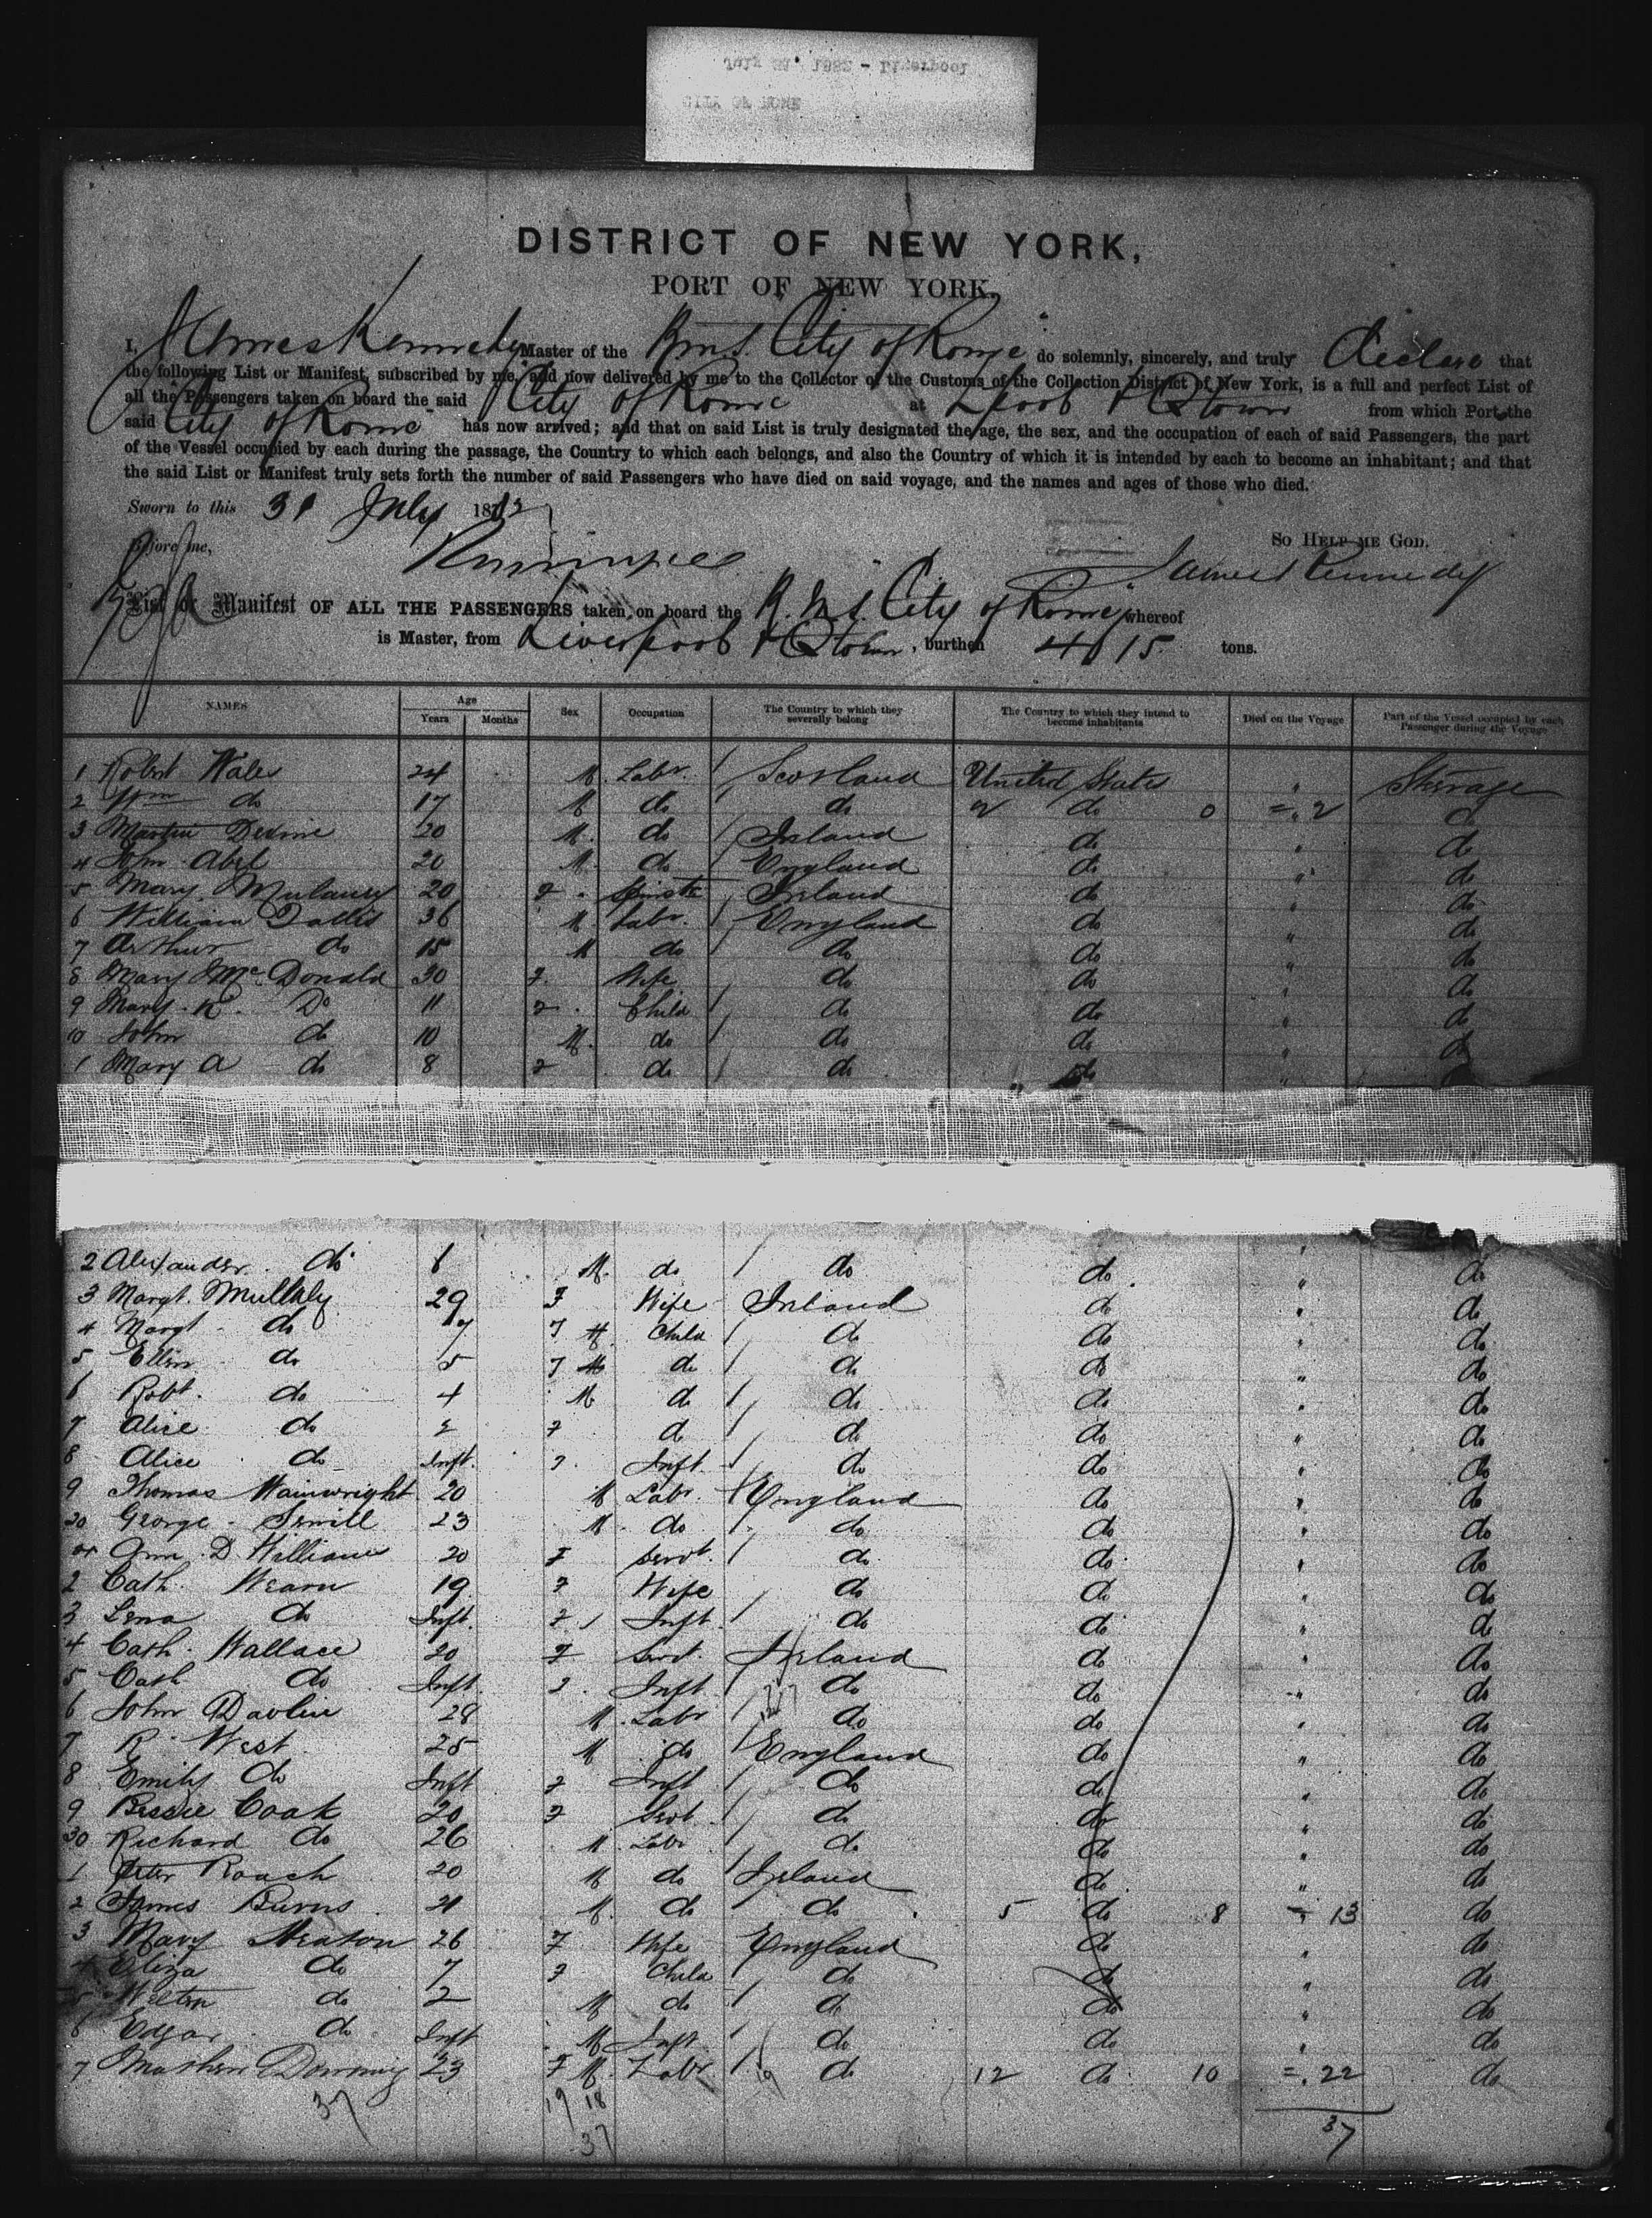 July 31, 1882 - Liverpool
CITY OF ROME
DISTRICT OF NEW YORK,
PORT OF NEW YORK.
I, James Kennedy Master of the Rms. City of Rome do solemnly, sincerely, and truly declare that
the following List or Manifest, subscribed by me, and now delivered by me to the Collector of the Customs of the Collection District of New York, is a full and perfect List of
all the Passengers taken on board the said City of Rome at Lpool & Qtown from which Port the
said City of Rome has now arrived; and that on said List is truly designated the age, the sex, and the occupation of each of said Passengers, the part
of the Vessel occupied by each during the passage, the Country to which each belongs, and also the Country of which it is intended by each to become an inhabitant; and that
the said List or Manifest truly sets forth the number of said Passengers who have died on said voyage, and the names and ages of those who died.
Sworn to this 31 July 1882
Before me, So HELP ME GOD.
James Kennedy
List or Manifest OF ALL THE PASSENGERS taken on board the R.M.S. City of Rome whereof
is Master, from Liverpool & Qtown, burthen 4415 tons.
NAMES Age Years Months Sex Occupation The Country to which they severally belong The Country to which they intend to become inhabitants Died on the Voyage Part of the Vessel occupied by each Passenger during the Voyage
1 Robert Wales 24 M. Labr. Scotland United States " Steerage
2 Wm do 17 M do do 2 do 0 = 2 do
3 Martin Devine 20 M. do Ireland do " do
4 John Abel 20 M. do England do " do
5 Mary Mulaney 20 F Spinster Ireland do " do
6 William Dallis 36 M Labr. England do " do
7 Arthur do 15 M do do do " do
8 Mary McDonald 30 F. Wife do do " do
9 Mary K. Do 11 F. Child do do " do
10 John do 10 M. do do do " do
1 Mary A do 8 F do do do "
2 Alexander do 6 M. do do do " do
3 Margt. Mullaly 29 F Wife Ireland do " do
4 Margt do 7 F Child do do " do
5 Ellen do 5 F do do do " do
6 Robt. do 4 M do do do " do
7 Alice do 2 F do do do " do
8 Alice do Inft. F Inft. do do " do
9 Thomas Wainwright 20 M Labr. England do " do
20 George Sewill 23 M. do do do " do
Ann D. Williams 20 F Servt. do do " do
2 Cath. Wearn 19 F Wife do do " do
3 Lena do Inft. F Inft. do do " do
4 Cath. Wallace 20 F Servt. Ireland do " do
5 Cath do Inft F. Inft do do " do
6 John Davlin 28 M. Labr do do " do
7 R. West 25 M do England do " do
8 Emily do Inft F Inft do do " do
9 Bessie Coak 20 F Servt do do " do
30 Richard do 26 M. Labr do do " do
1 Peter Roach 20 M do Ireland do " do
2 James Burns 21 M. do do 5 do 8 = 13 do
3 Mary Heaton 26 F Wife England do " do
4 Eliza do 7 F Child do do " do
5 do 2 M do do do " do
6 Edgar do Inft M Inft do do " do
7 23 M. Labr 19 do 12 do 10 = 22 do
37 19 18 37
37